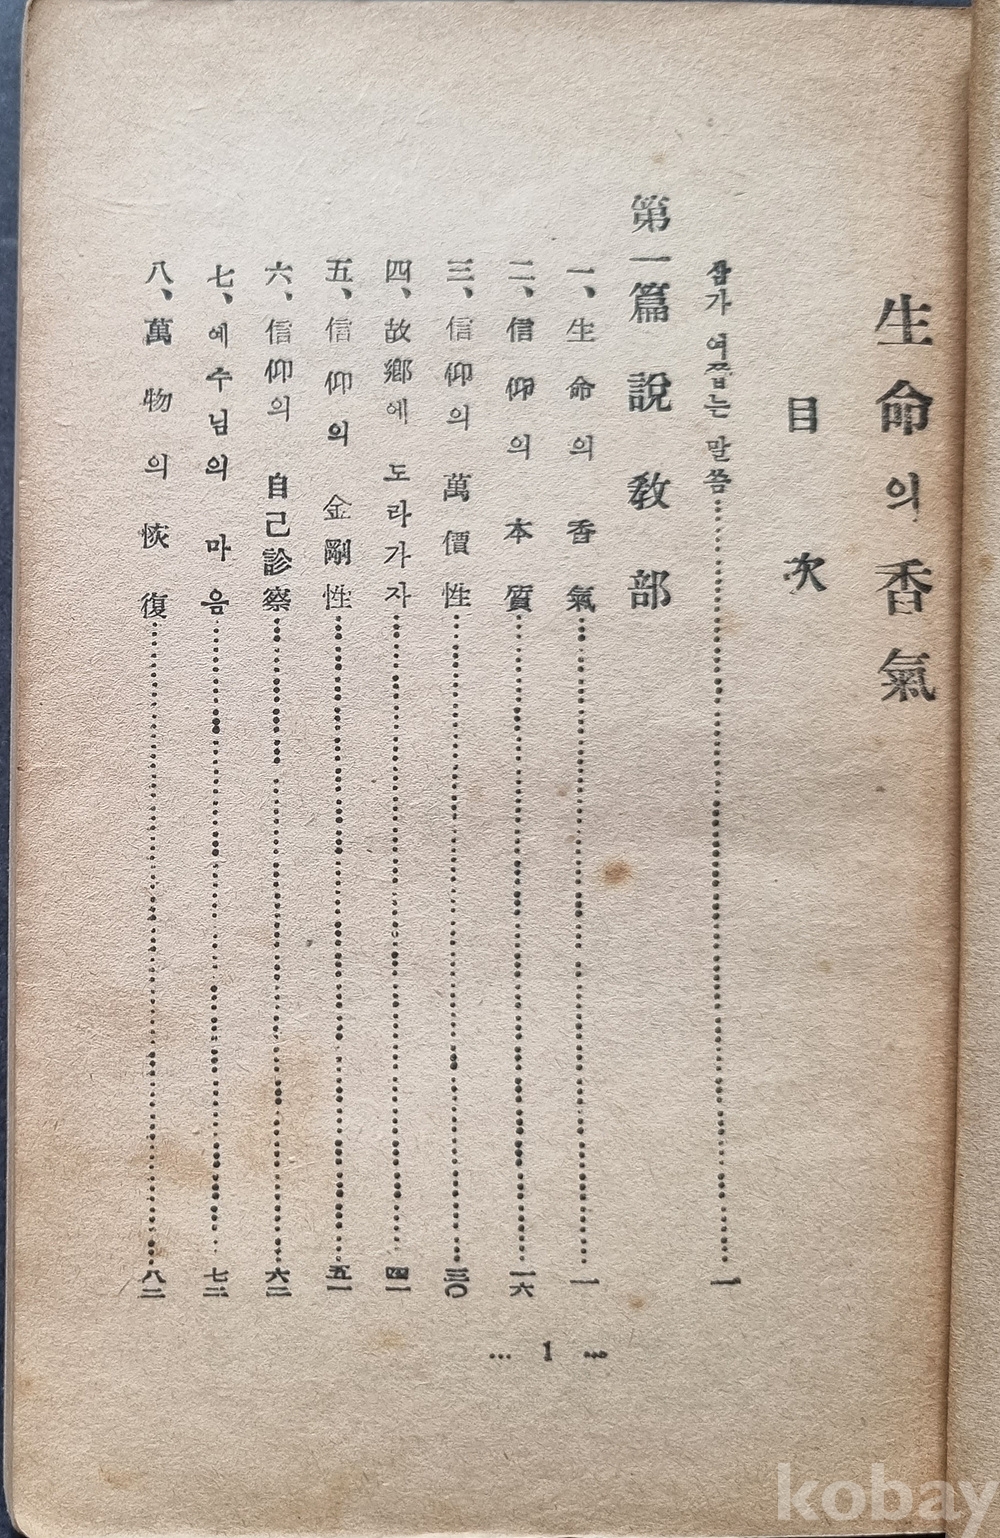 生命의 香氣
目次
잠가 여쭙는 말씀……一
第一篇 說敎部
一、生命의 香氣……一
二、信仰의 本質……一六
三、信仰의 萬價性……三〇
四、故鄕에 도라가자……四一
五、信仰의 金剛性……五一
六、信仰의 自己診察……六二
七、예수님의 마음……七三
八、萬物의 恢復……八二
… 1 …
kobay